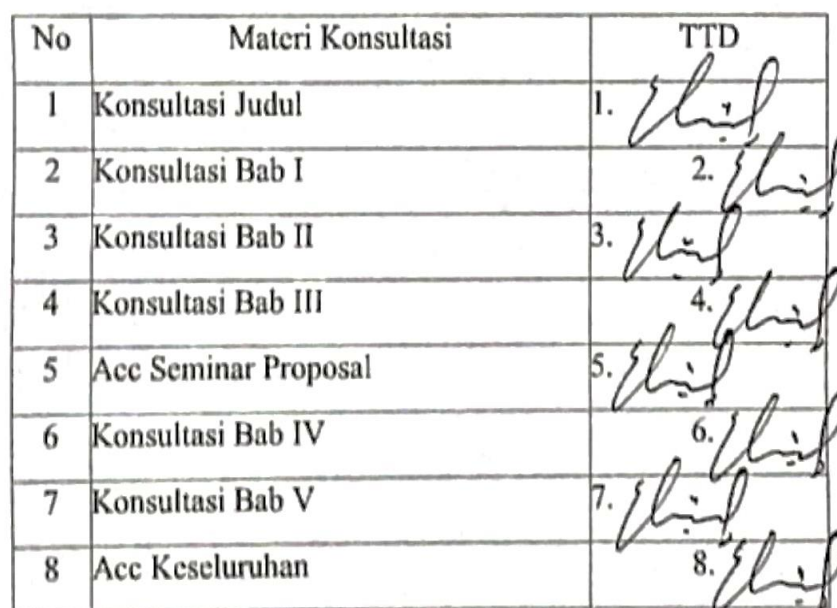 No Materi Konsultasi TTD
1 Konsultasi Judul 1.
2 Konsultasi Bab I 2.
3 Konsultasi Bab II 3.
4 Konsultasi Bab III 4.
5 Acc Seminar Proposal 5.
6 Konsultasi Bab IV 6.
7 Konsultasi Bab V 7.
8 Acc Keseluruhan 8.